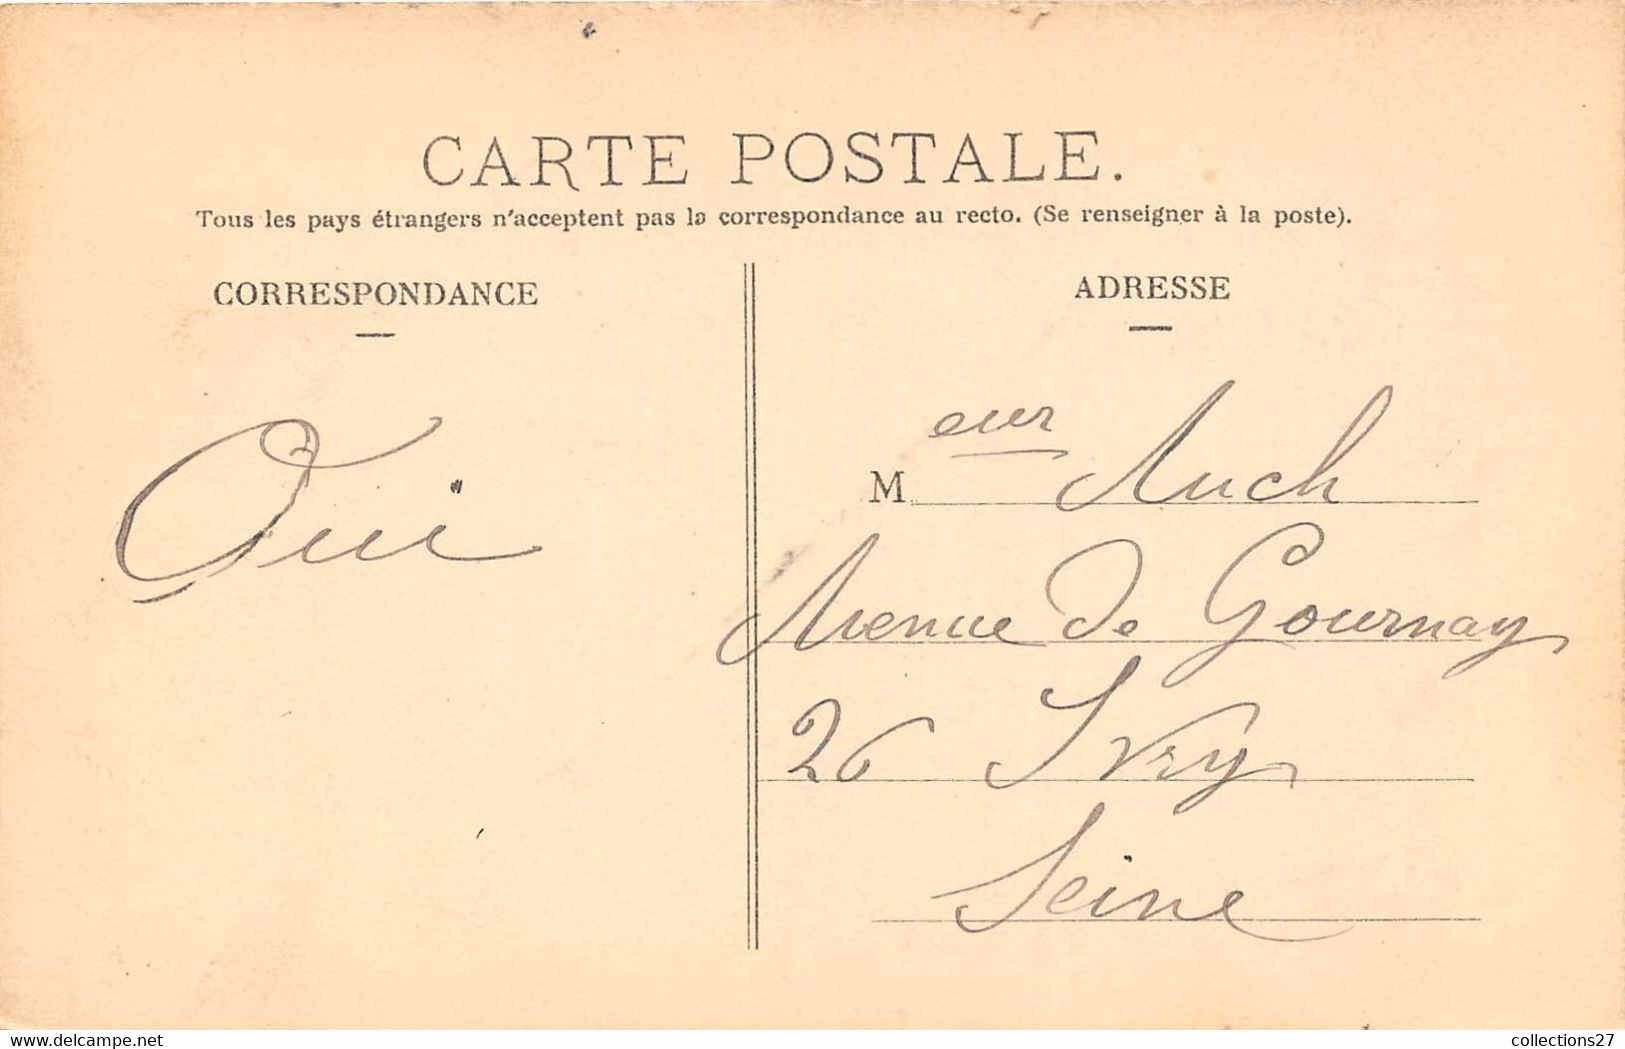 CARTE POSTALE.
Tous les pays étrangers n'acceptent pas la correspondance au recto. (Se renseigner à la poste).
CORRESPONDANCE
Oui
ADRESSE
M eur Auch
Avenue de Gournay
26 Ivry
Seine
www.delcampe.net
collections27